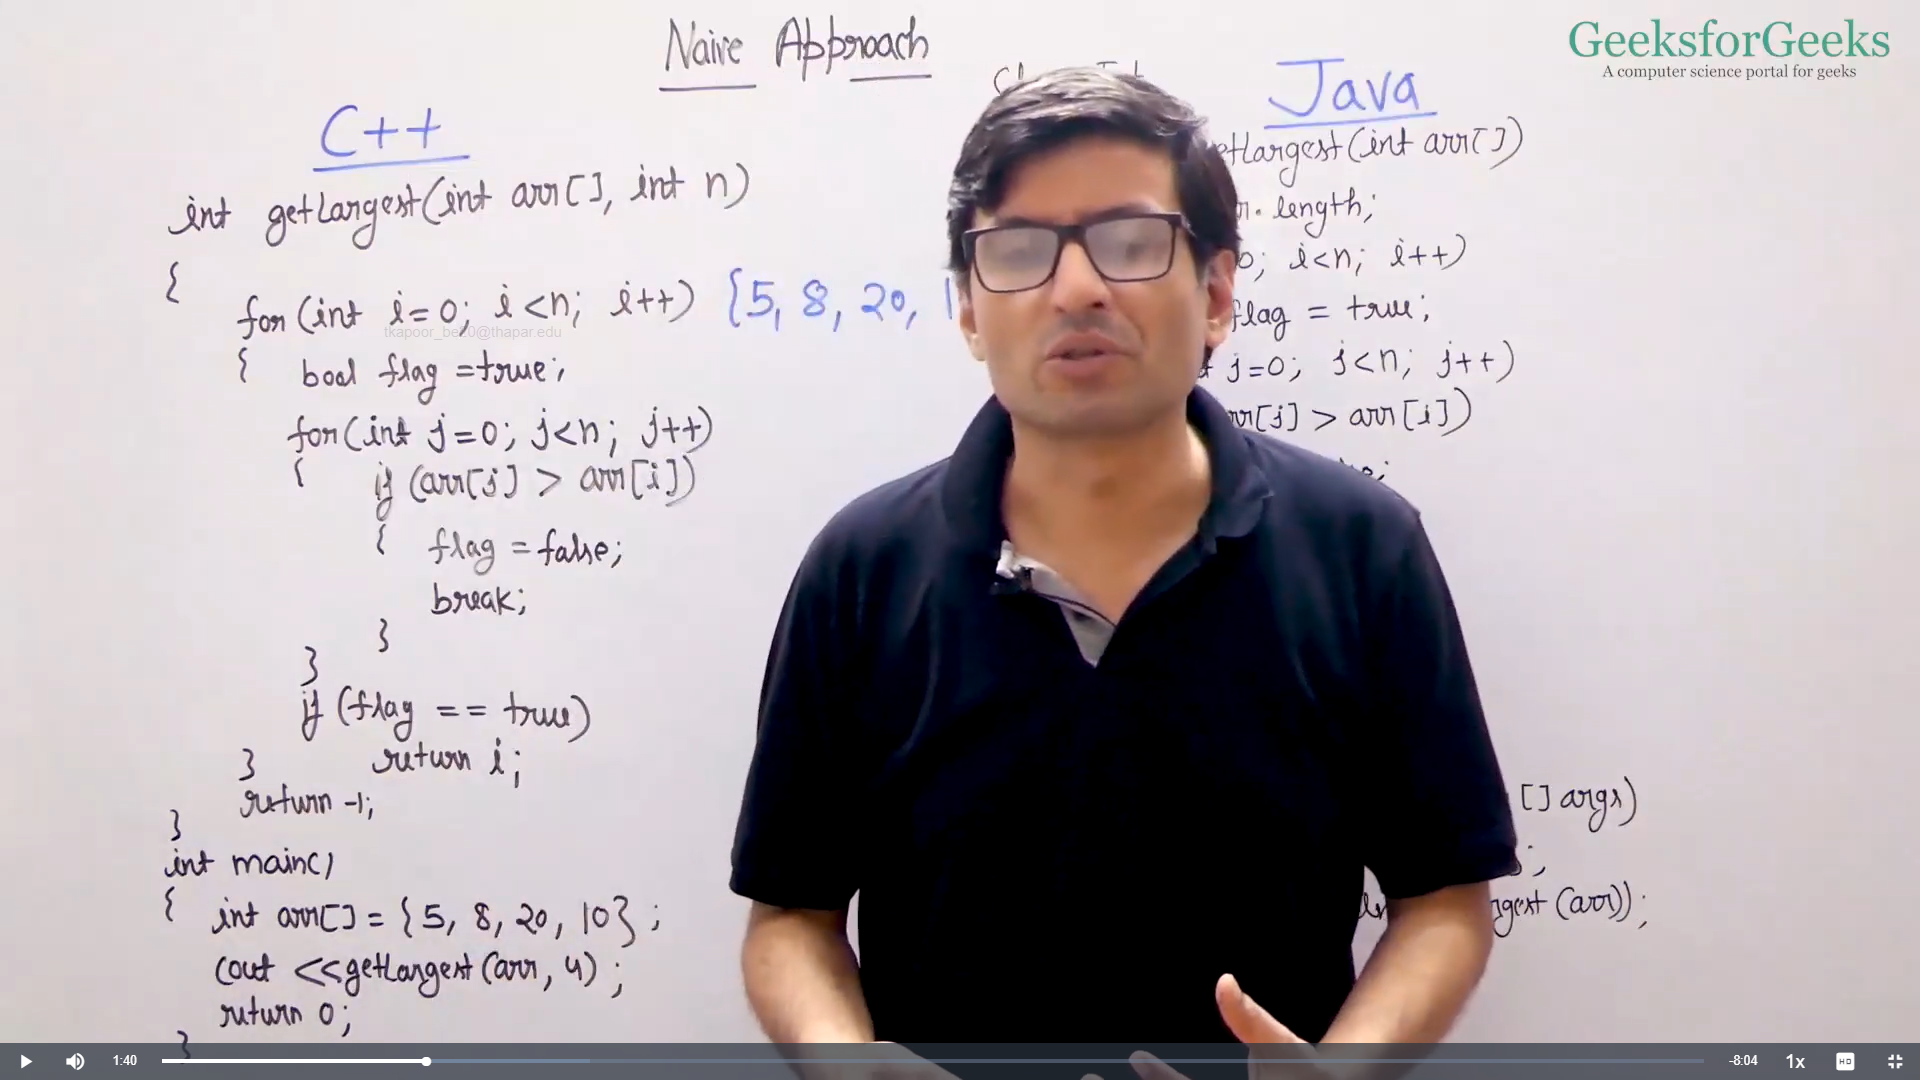 Naive Approach
GeeksforGeeks
A computer science portal for geeks
C++
int getLargest(int arr[], int n)
{
for(int i=0; i<n; i++)
{5, 8, 20,
tkapoor_be20@thapar.edu
{ bool flag =true;
for(int j=0; j<n; j++)
{ if (arr[j] > arr[i])
{ flag = false;
break;
}
}
if (flag == true)
return i;
}
return -1;
}
int main()
{ int arr[] = {5, 8, 20, 10} ;
cout <<getLargest(arr, 4) ;
return 0;
}
Java
etLargest(int arr[])
r.length;
0; i<n; i++)
flag = true;
j=0; j<n; j++)
rr[j] > arr[i])
[] args)
};
gest(arr));
1:40
-8:04
1x
HD